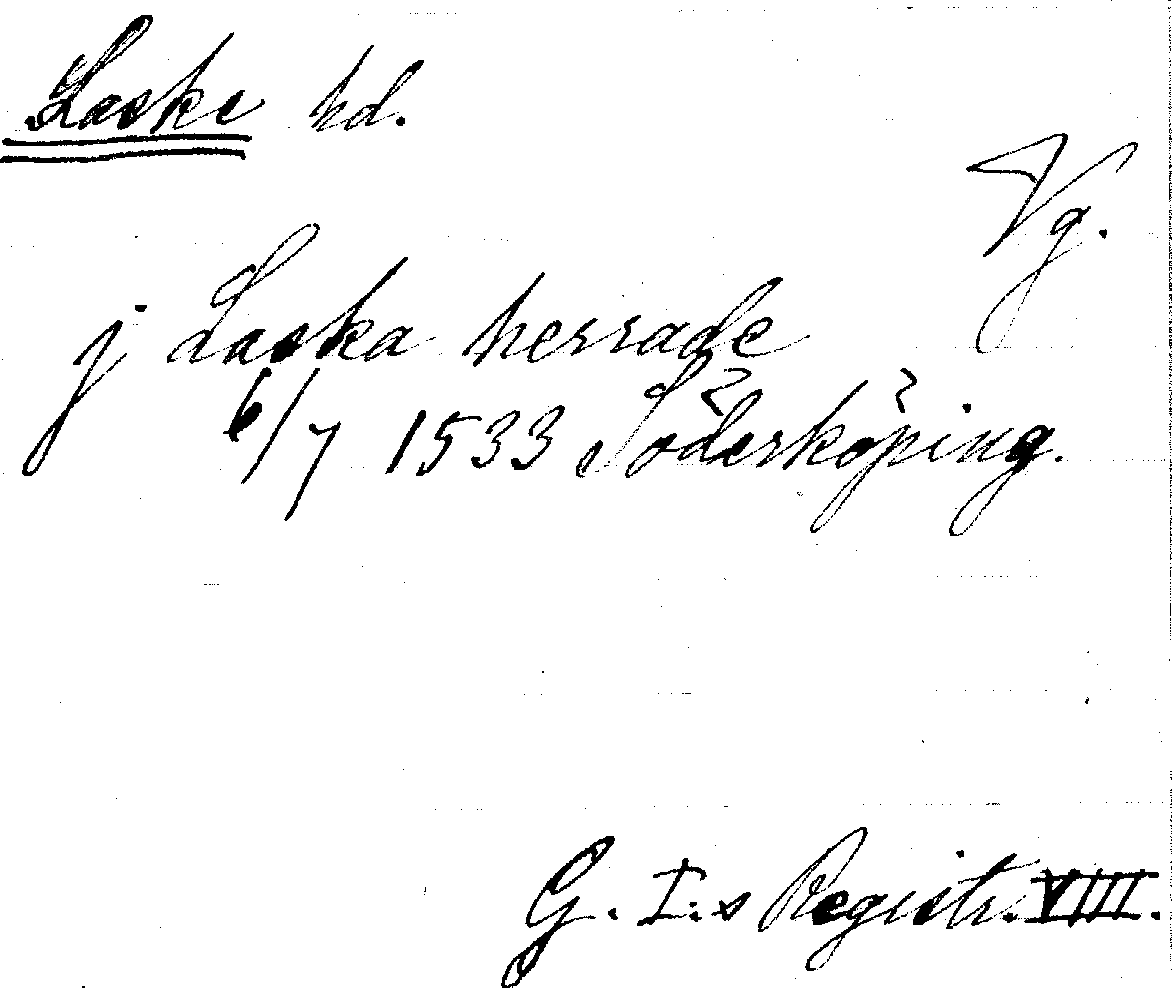 Laske hd.
Vg.
j Laska herrade
6/7 1533 Söderköping.
G. I.s Registr. VIII.